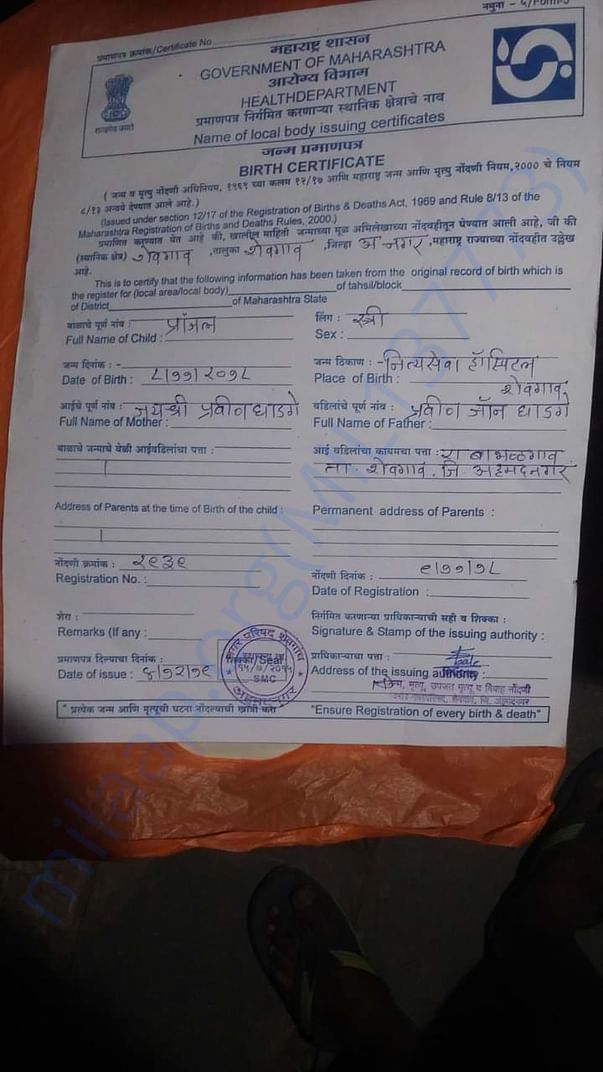 नमुना - ५/Form-5
प्रमाणपत्र क्रमांक/Certificate No.
महाराष्ट्र शासन
GOVERNMENT OF MAHARASHTRA
आरोग्य विभाग
HEALTHDEPARTMENT
प्रमाणपत्र निर्गमित करणाऱ्या स्थानिक क्षेत्राचे नाव
Name of local body issuing certificates
सत्यमेव जयते
जन्म प्रमाणपत्र
BIRTH CERTIFICATE
( जन्म व मृत्यु नोंदणी अधिनियम, १९६९ च्या कलम १२/१७ आणि महाराष्ट्र जन्म आणि मृत्यु नोंदणी नियम,2000 चे नियम
८/१३ अन्वये देण्यात आले आहे.)
(Issued under section 12/17 of the Registration of Births & Deaths Act, 1969 and Rule 8/13 of the
Maharashtra Registration of Births and Deaths Rules, 2000.)
प्रमाणित करण्यात येत आहे की, खालील माहिती जन्माच्या मूळ अभिलेखाच्या नोंदवहीतून घेण्यात आली आहे, जी की
(स्थानिक क्षेत्र) शेवगाव ,तालुका शेवगाव ,जिल्हा अ.नगर ,महाराष्ट्र राज्याच्या नोंदवहीत उल्लेख
आहे.
This is to certify that the following information has been taken from the original record of birth which is
the register for (local area/local body) of tahsil/block
of District of Maharashtra State
बाळाचे पूर्ण नांव : प्रांजल लिंग : स्त्री
Full Name of Child : Sex :
जन्म दिनांक : - जन्म ठिकाण : - नित्यसेवा हॉस्पिटल
Date of Birth : ८/११/२०१८ Place of Birth : शेवगाव
आईचे पूर्ण नांव : जयश्री प्रवीन घाडगे वडिलांचे पूर्ण नांव : प्रवीन जॉन घाडगे
Full Name of Mother : Full Name of Father :
बाळाचे जन्माचे वेळी आईवडिलांचा पत्ता : आई वडिलांचा कायमचा पत्ता : रा बाभळगाव
ता. शेवगाव, जि. अहमदनगर
Address of Parents at the time of Birth of the child : Permanent address of Parents :
नोंदणी क्रमांक : २९३९ नोंदणी दिनांक : ९/११/१८
Registration No. : Date of Registration :
शेरा : निर्गमित करणाऱ्या प्राधिकाऱ्याची सही व शिक्का :
Remarks (If any : Signature & Stamp of the issuing authority :
प्रमाणपत्र दिल्याचा दिनांक : शिक्का/Seal प्राधिकाऱ्याचा पत्ता :
Date of issue : ४/१२/१९ Address of the issuing authority :
नगर परिषद शेवगांव
SMC
अहमदनगर
जन्म, मृत्यु, उपजत मृत्यु व विवाह नोंदणी
" प्रत्येक जन्म आणि मृत्यूची घटना नोंदल्याची खात्री करा "Ensure Registration of every birth & death"
milaap.org(MI_137773)